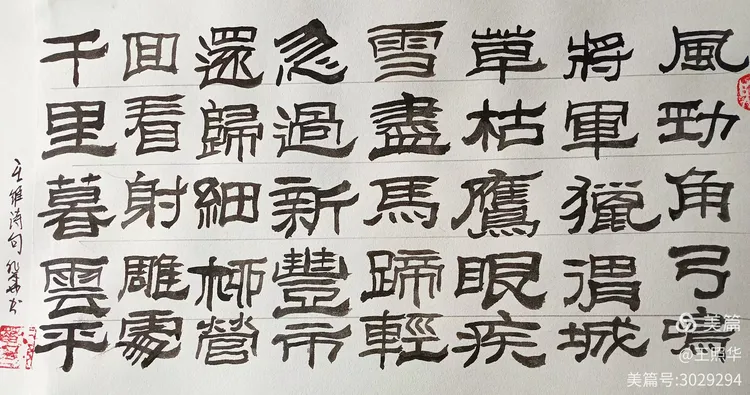 風勁角弓鳴
將軍獵渭城
草枯鷹眼疾
雪盡馬蹄輕
忽過新豐市
還歸細柳營
回看射雕處
千里暮雲平
王維詩句
美篇
@王照华
美篇号:3029294